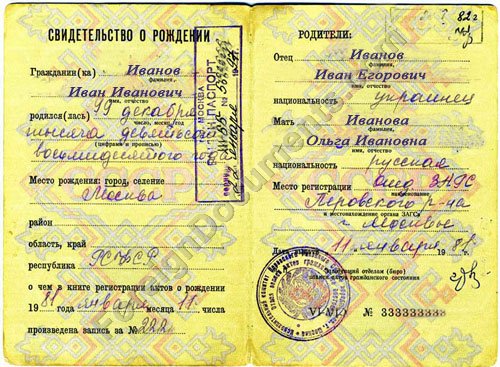 СВИДЕТЕЛЬСТВО О РОЖДЕНИИ
Гражданин(ка) Иванов
фамилия,
Иван Иванович
имя, отчество
родился(лась) 99 декабря
число, месяц, год
тысяча девятьсот
(цифрами и прописью)
восемидесятого года
Место рождения: город, селение
Москва
район
область, край
республика РСФСР
о чем в книге регистрации актов о рождении
1981 января месяца 11 числа
произведена запись за № 222
г. МОСКВА
ПАСПОРТ
82 г
РОДИТЕЛИ:
Отец Иванов
фамилия,
Иван Егорович
имя, отчество
национальность украинец
Мать Иванова
фамилия,
Ольга Ивановна
имя, отчество
национальность русская
Место регистрации отд ЗАГС
наименование
Перовского р-на
и местонахождение органа ЗАГСа
г. Москвы
11 января 1981 г.
отделом (бюро)
записи актов гражданского состояния
VI-МЮ № 333333333